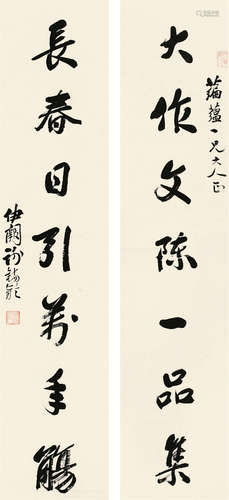 蘊一兄大人正
大作文陳一品集
長春日引萬年觴
伊闕